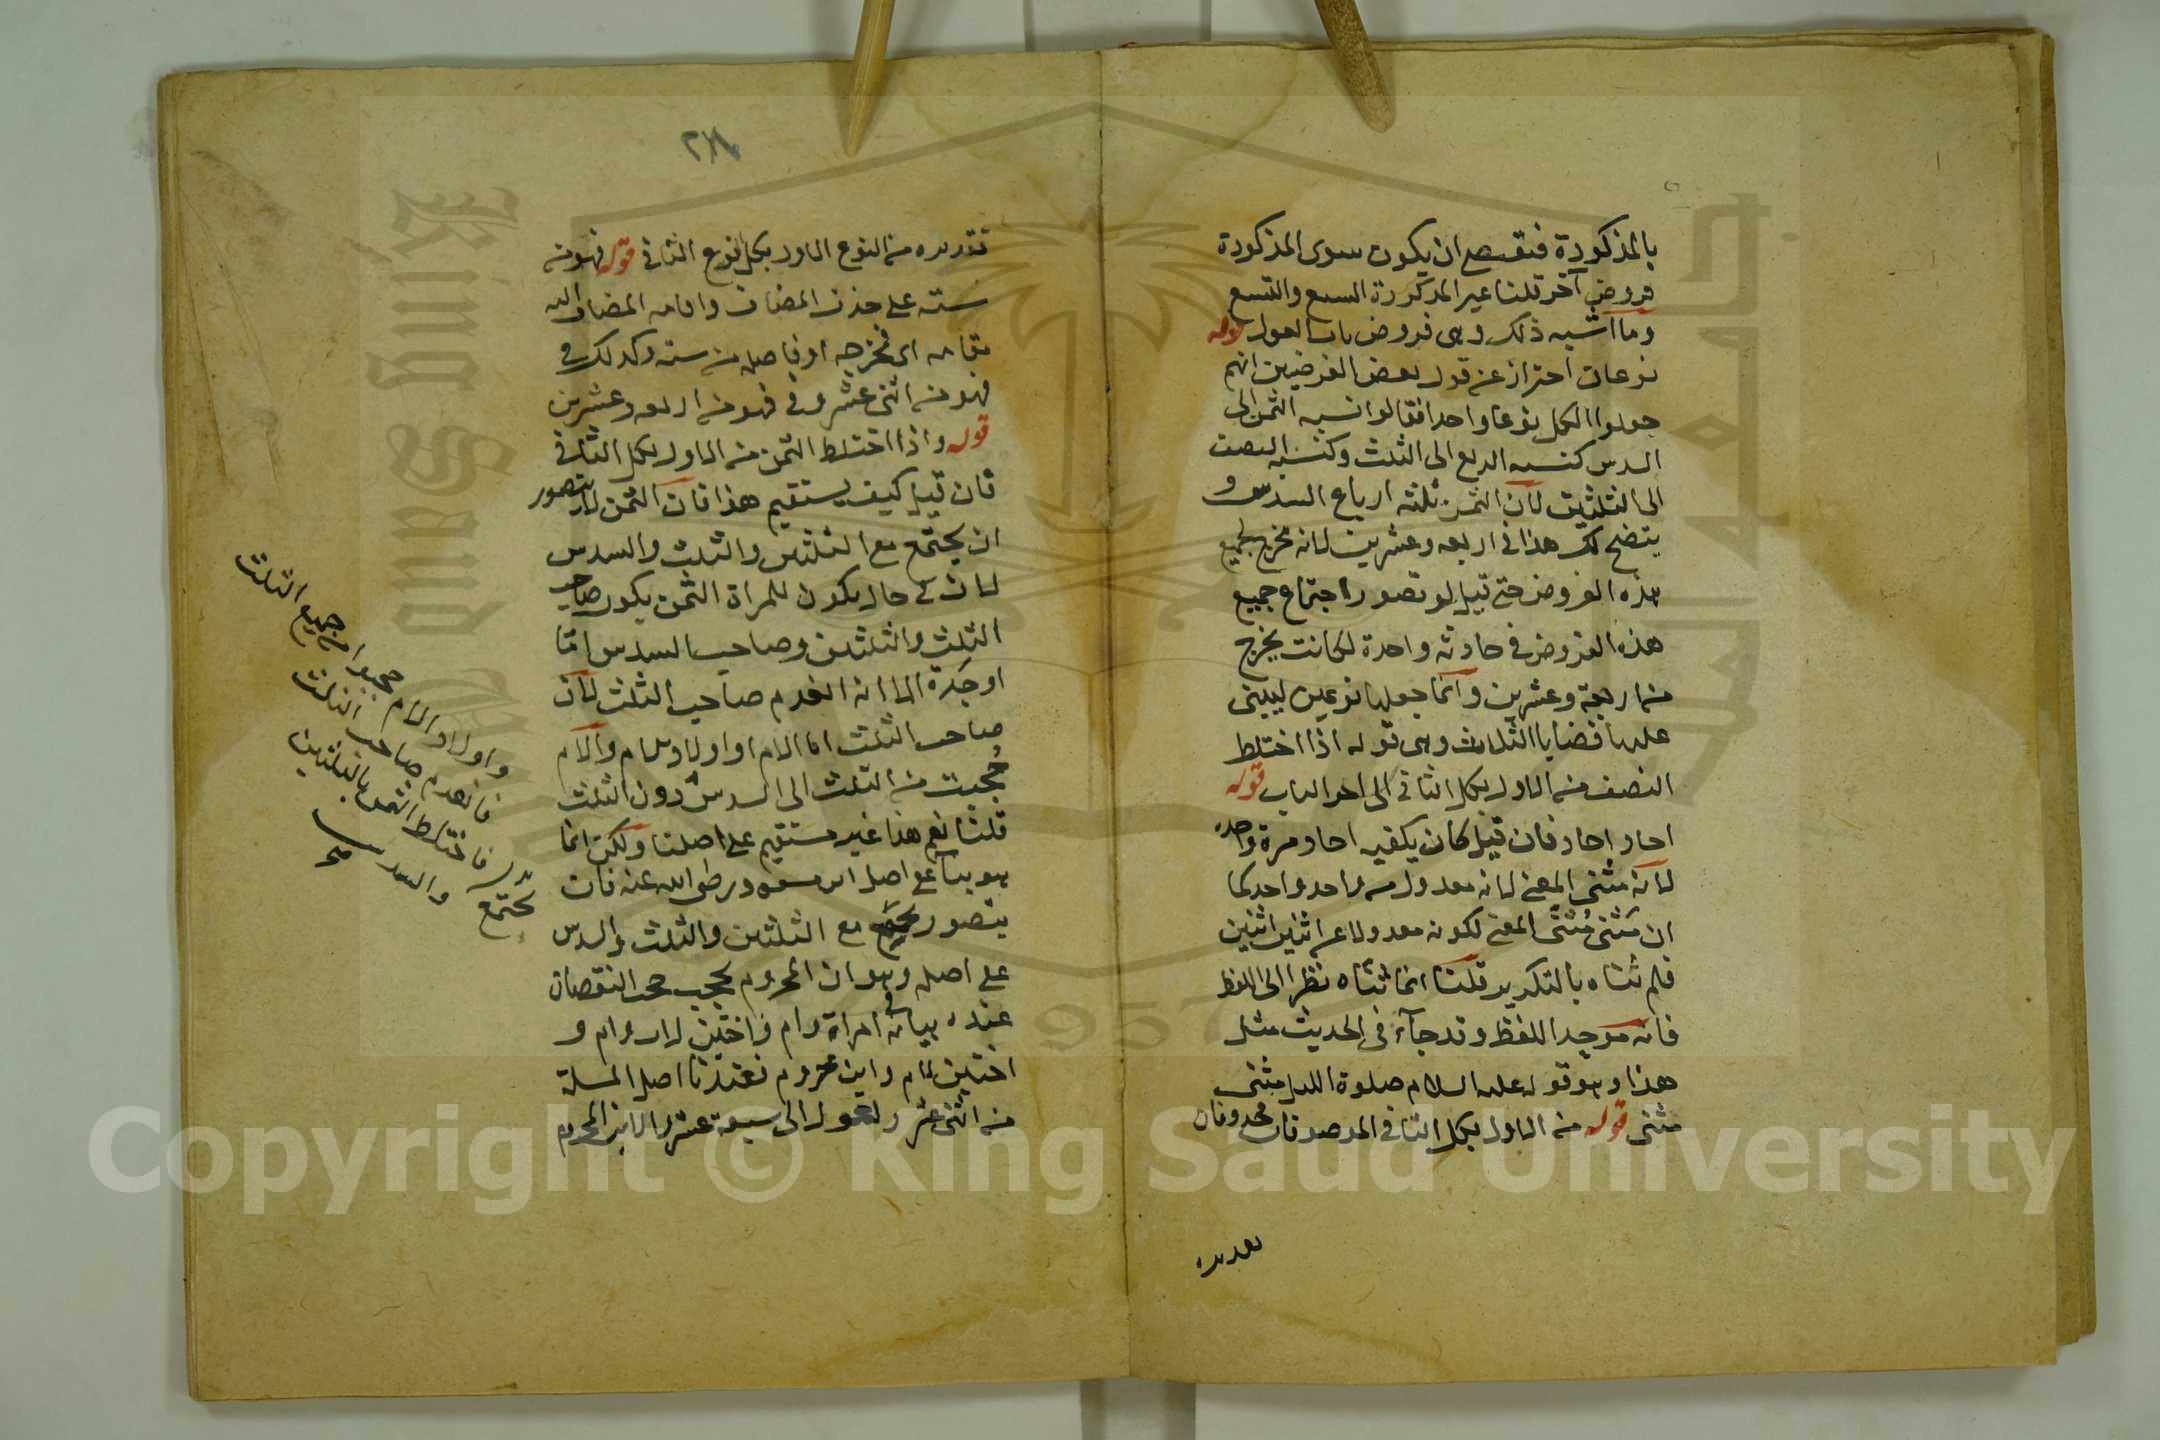 بالمذكورة فيقتضي ان يكون سوى المذكورة
فروض آخر قلنا غير المذكورة السبع والتسع
وما اشبه ذلك وهى فروض باب العول قوله
نوعان احتراز عن قول بعض الفرضيين انهم
جعلوا الكل نوعا واحدا فقالوا نسبه الثمن الى
السدس كنسبه الربع الى الثلث وكنسبه النصف
الى الثلثين لان الثمن ثلثه ارباع السدس و
يتضح لك هذا فى اربعه وعشرين لانه مخرج لجميع
هذه الفروض حتى قيل لو تصور اجتماع جميع
هذه الفروض فى حادثه واحدة لكانت يخرج
من اربعة وعشرين وانما جعلها نوعين ليبنى
عليها قضايا الثلاث وهى قوله اذا اختلط
النصف من الاول بكل الثانى الى اخر الباب قوله
احاد احاد فان قيل كان يكفيه احاد مرة واحده
لانه مثنى المعنى لانه معدول من واحد واحد كما
ان مثنى مثنى المعنى لكونه معدولا عن اثنين اثنين
فلم ثناه بالتكرير قلنا انما ثناه نظرا الى اللفظ
فانه موحد اللفظ وقد جآء فى الحديث مثل
هذا وهو قوله عليه السلام صلوة الليل مثنى
مثنى قوله من الاول بكل الثانى الموصوفان محذوفان
تقديره
تقديره من النوع الاول بكل النوع الثانى قوله فهو من
سته على حذف المضاف واقامه المضاف اليه
مقامه اى فمخرجه او فاصله من سته وكذلك فى
فهو من اثنى عشر وفى فهو من اربعه وعشرين
قوله واذا اختلط الثمن من الاول بكل الثانى
فان قيل كيف يستقيم هذا فان الثمن لا يتصور
ان يجتمع مع الثلثين والثلث والسدس
لان فى حال يكون للمراة الثمن يكون صاحب
الثلث والثلثين وصاحب السدس امّا
او جدة الا انه انعدم صاحب الثلث لان
صاحب الثلث اما الام او اولاد الام والام
حُجبت من الثلث الى السدس دون الثلث
قلنا نعم هذا غير مستقيم على اصلنا ولكن انما
هو بنآء على اصل ابن مسعود رضى الله عنه فان
يتصور يجتمع مع الثلثين والثلث والسدس
على اصله وهو ان المحروم يحجب حجب النقصان
عنده بيانه فى امراة وام واختين لاب وام و
اختين لام وابن محروم فعندنا اصل المسئلة
من اثنى عشر ولعول الى سبعة عشر لان الابن المحروم
واولاد الام حجبوا من جميع الثلث
فانعدم صاحب الثلث
فاختلط الثمن بالثلثين
والسدس
يجتمع